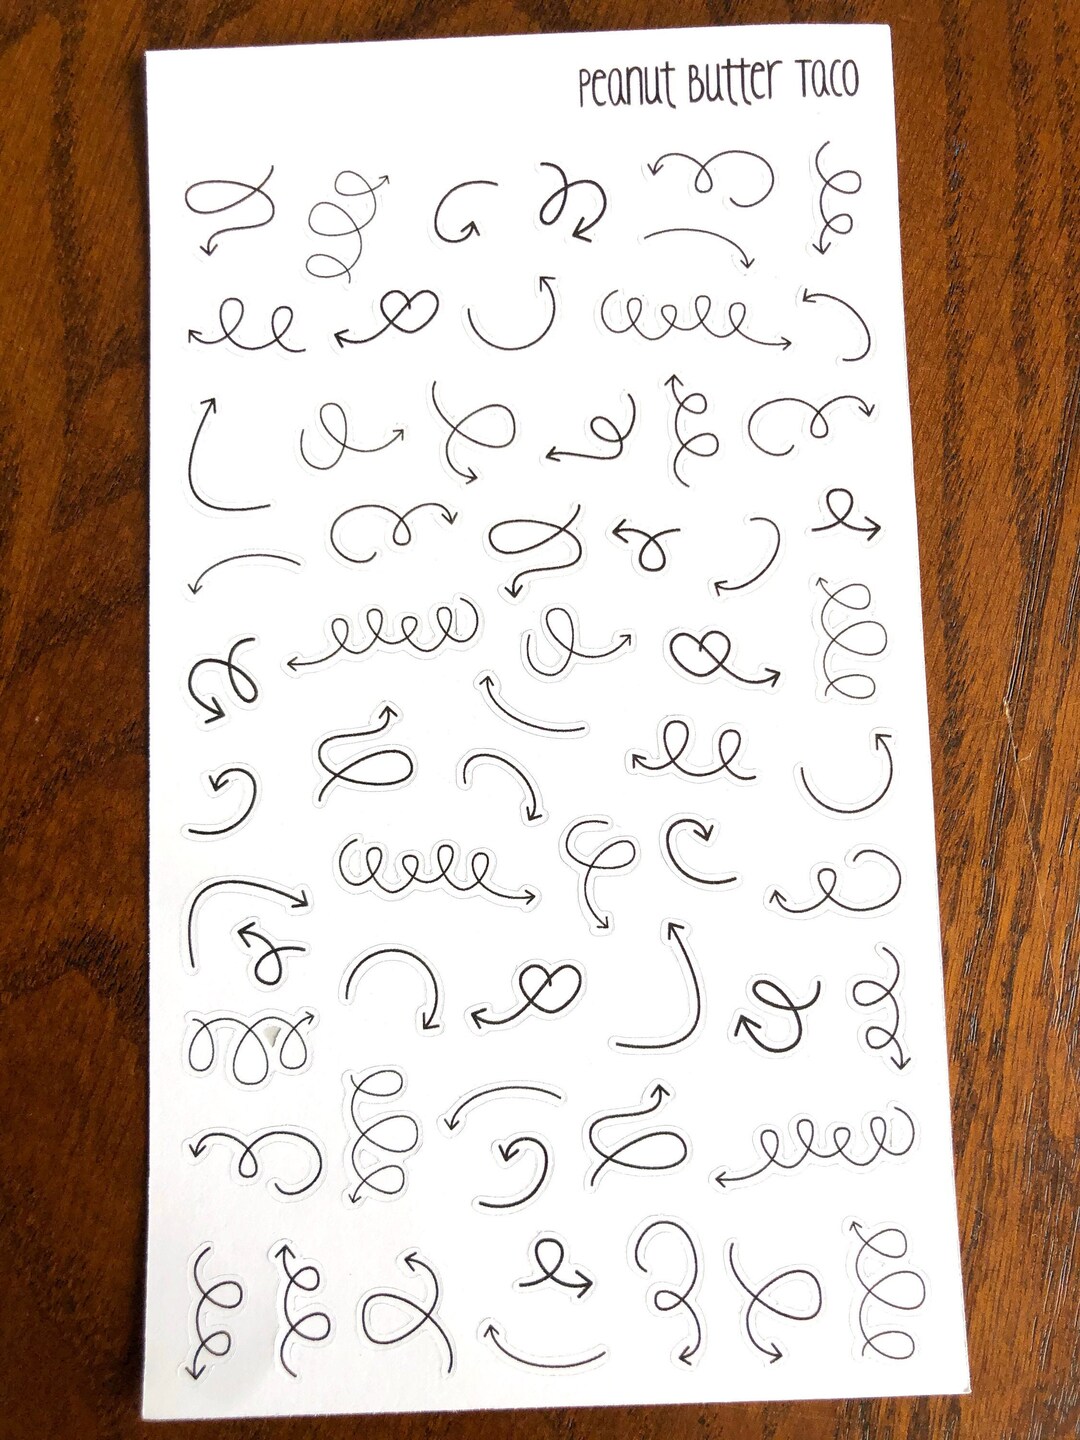 Peanut Butter Taco